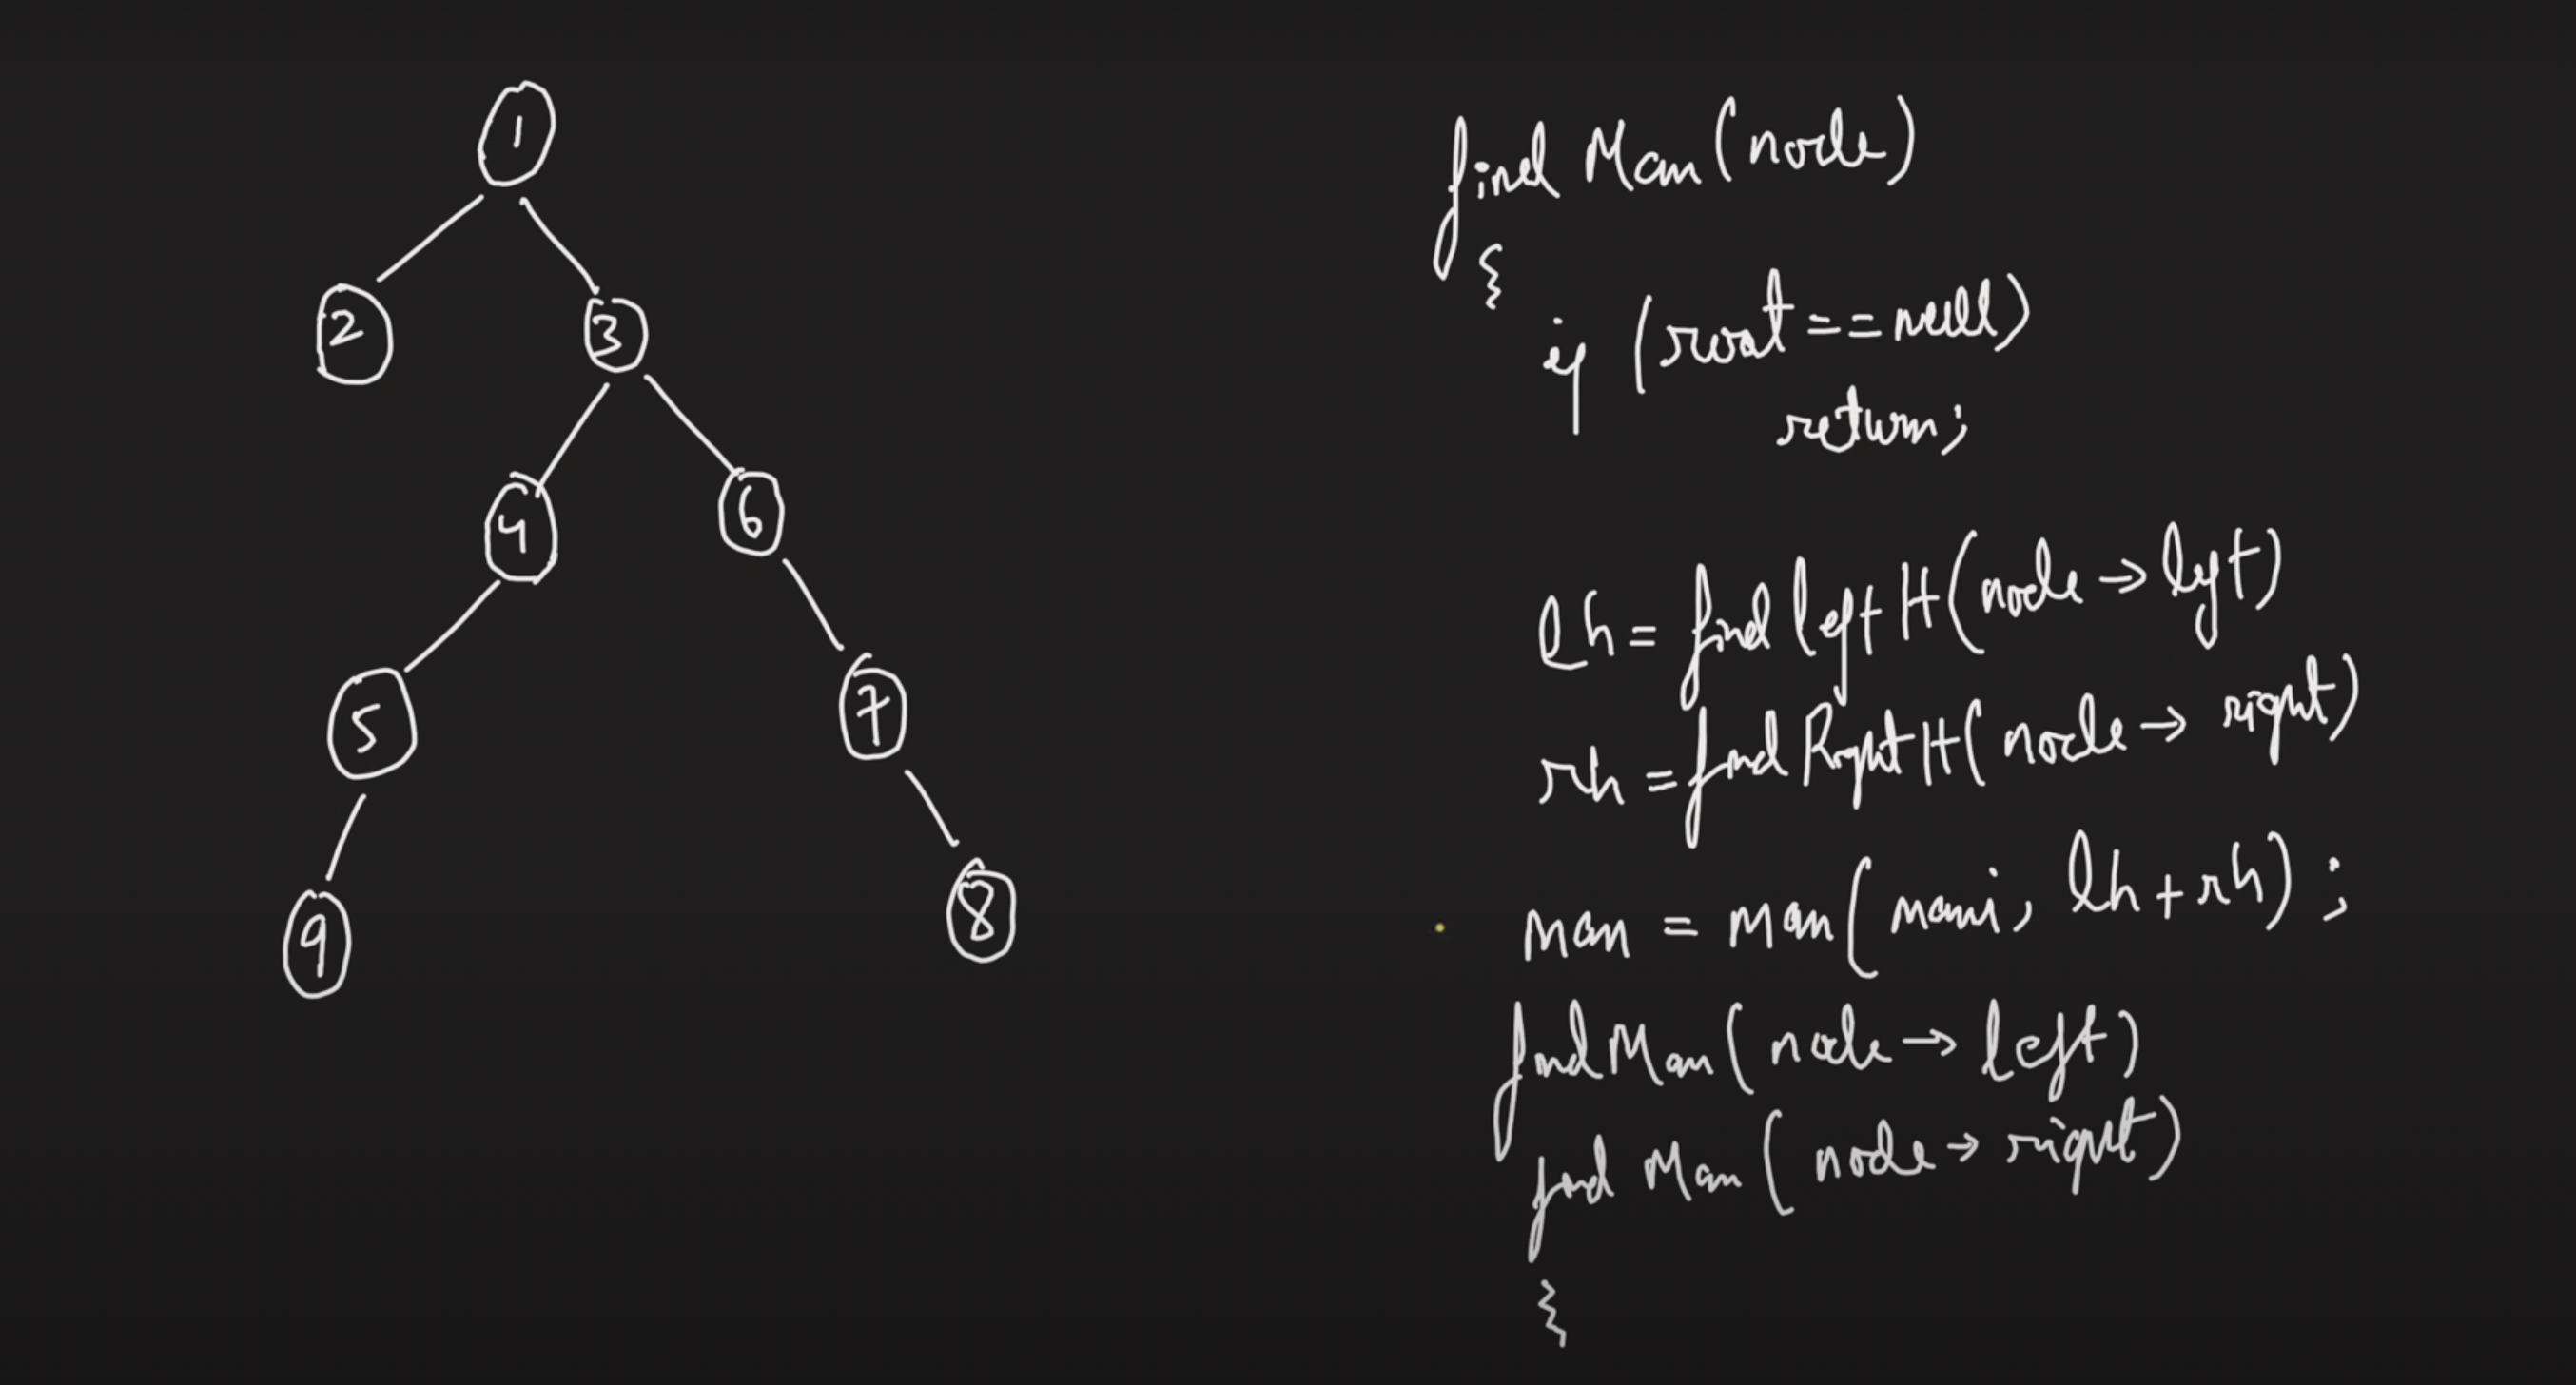 1
2
3
4
6
5
7
9
8
find Max (node)
{
if (root == null)
return;
lh = find left H (node → left)
rh = find Right H (node → right)
max = max (maxi, lh + rh);
find Max (node → left)
find Max (node → right)
}